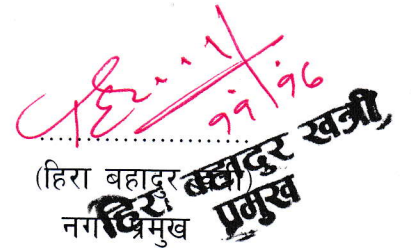 ११/१६
(हिरा बहादुर खत्री)
नगर प्रमुख
हिरा बहादुर खत्री
प्रमुख